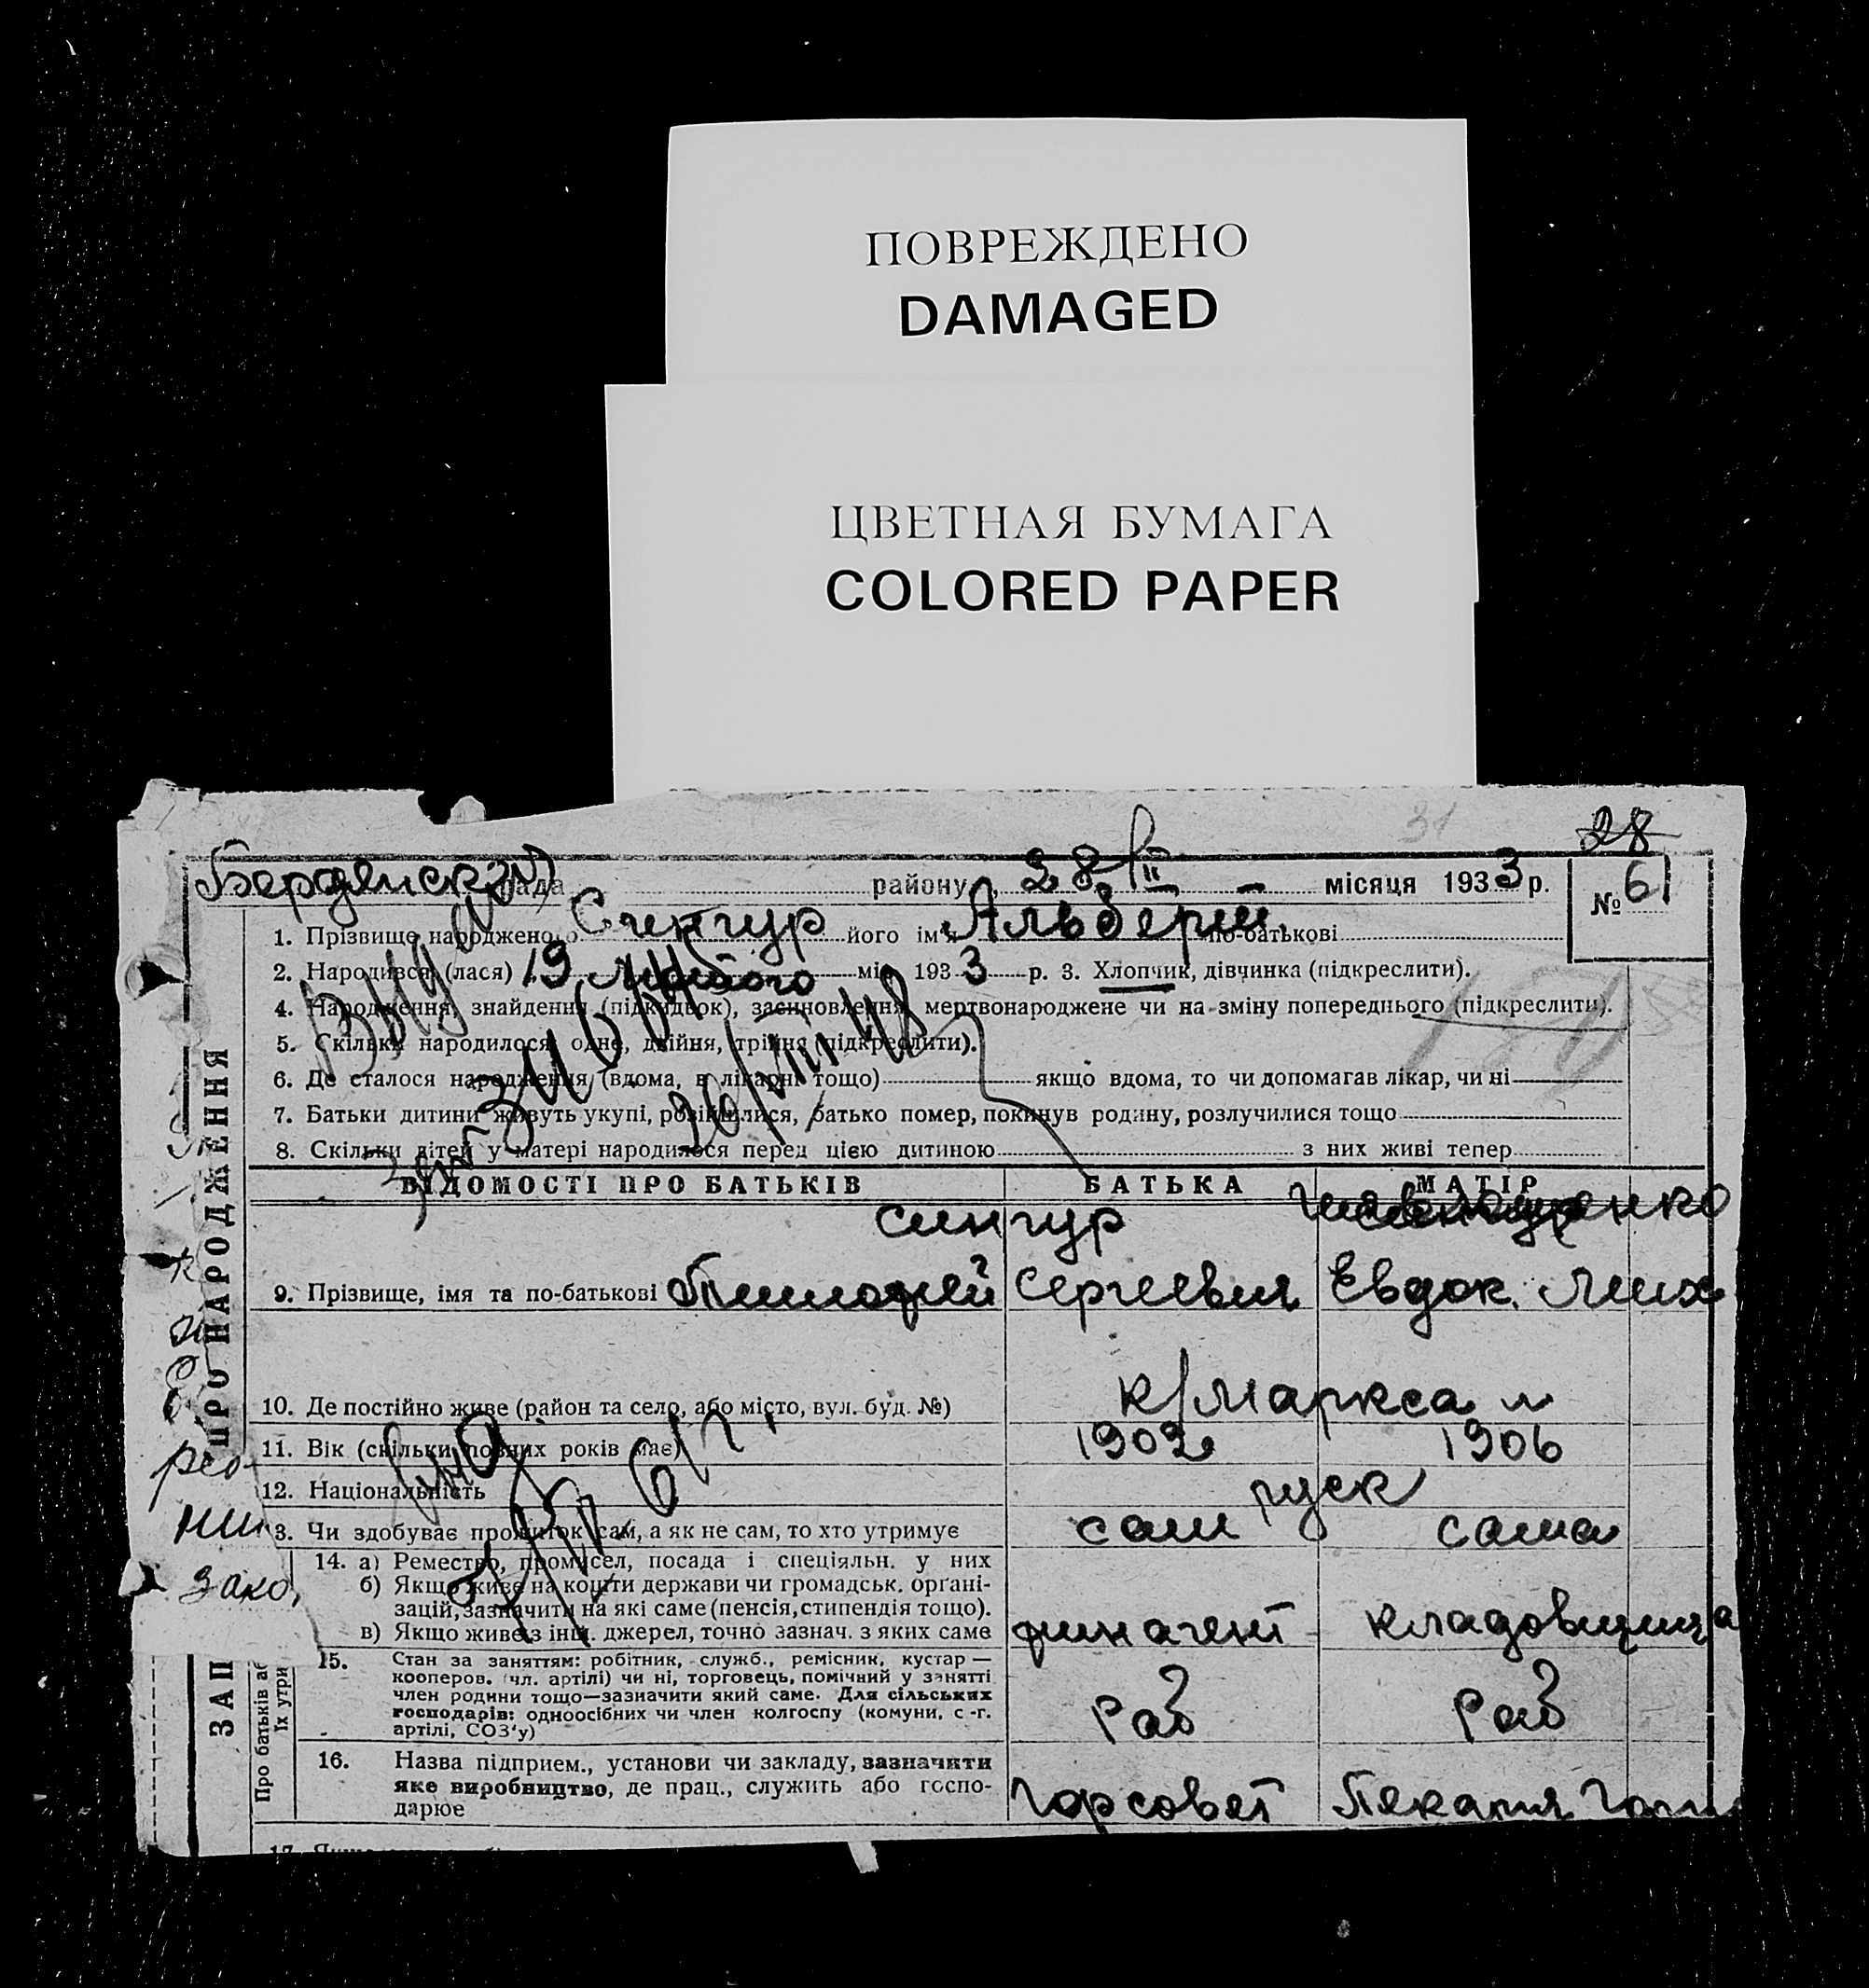 ПОВРЕЖДЕНО
DAMAGED
ЦВЕТНАЯ БУМАГА
COLORED PAPER
31 28
Бердянск рада району „ 28/II місяця 1933 р. № 61
1. Прізвище народженого Сингур його ім'я Альберт по-батькові
2. Народився (лася) 19 Лютого міс. 1933 р. 3. Хлопчик, дівчинка (підкреслити).
4. Народження, знайдення (підкидьок), засиновлення, мертвонароджене чи на зміну попереднього (підкреслити).
5. Скільки народилося: одне, двійня, трійня (підкреслити).
6. Де сталося народження (вдома, в лікарні тощо) якщо вдома, то чи допомагав лікар, чи ні
7. Батьки дитини живуть укупі, розійшлися, батько помер, покинув родину, розлучилися тощо
8. Скільки дітей у матері народилося перед цією дитиною з них живі тепер
26/VIII 48
ПРО НАРОДЖЕННЯ
ЗАП
ВІДОМОСТІ ПРО БАТЬКІВ БАТЬКА МАТІР
Сингур
9. Прізвище, імя та по-батькові Тимофей Сергеевич Евдок. Мих
10. Де постійно живе (район та село, або місто, вул. буд. №) К/Маркса
11. Вік (скільки повних років має) 1902 1906
12. Національність руск
3. Чи здобуває прожиток сам, а як не сам, то хто утримує сам сама
14. а) Ремество, промисел, посада і спеціяльн. у них
б) Якщо живе на кошти держави чи громадськ. органі-
зацій, зазначити на які саме (пенсія, стипендія тощо).
в) Якщо живе з інш. джерел, точно зазнач. з яких саме финагент кладовщица
15. Стан за заняттям: робітник, служб., ремісник, кустар —
кооперов. (чл. артілі) чи ні, торговець, помічний у занятті
член родини тощо—зазначити який саме. Для сільських
господарів: одноосібних чи член колгоспу (комуни, с.-г.
артілі, СОЗ'у) раб раб
16. Назва підприєм., установи чи закладу, зазначити
яке виробництво, де прац., служить або госпо-
дарює Горсовет Пекарня
Про батьків аб
їх утри
зако